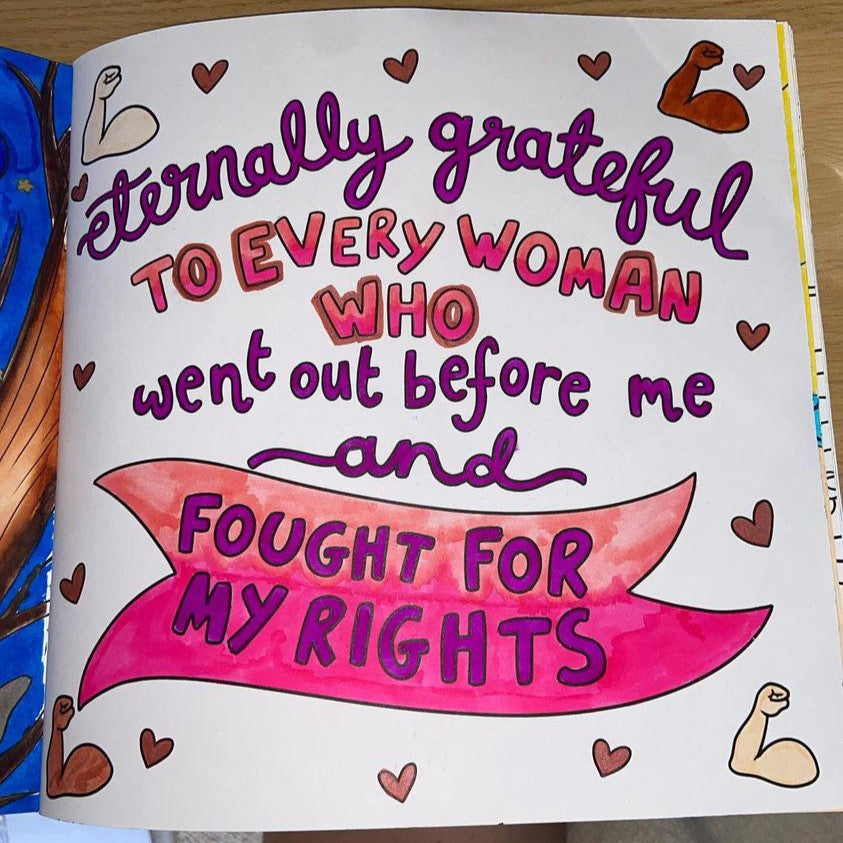 eternally grateful
TO EVERY WOMAN
WHO
went out before me
and
FOUGHT FOR
MY RIGHTS